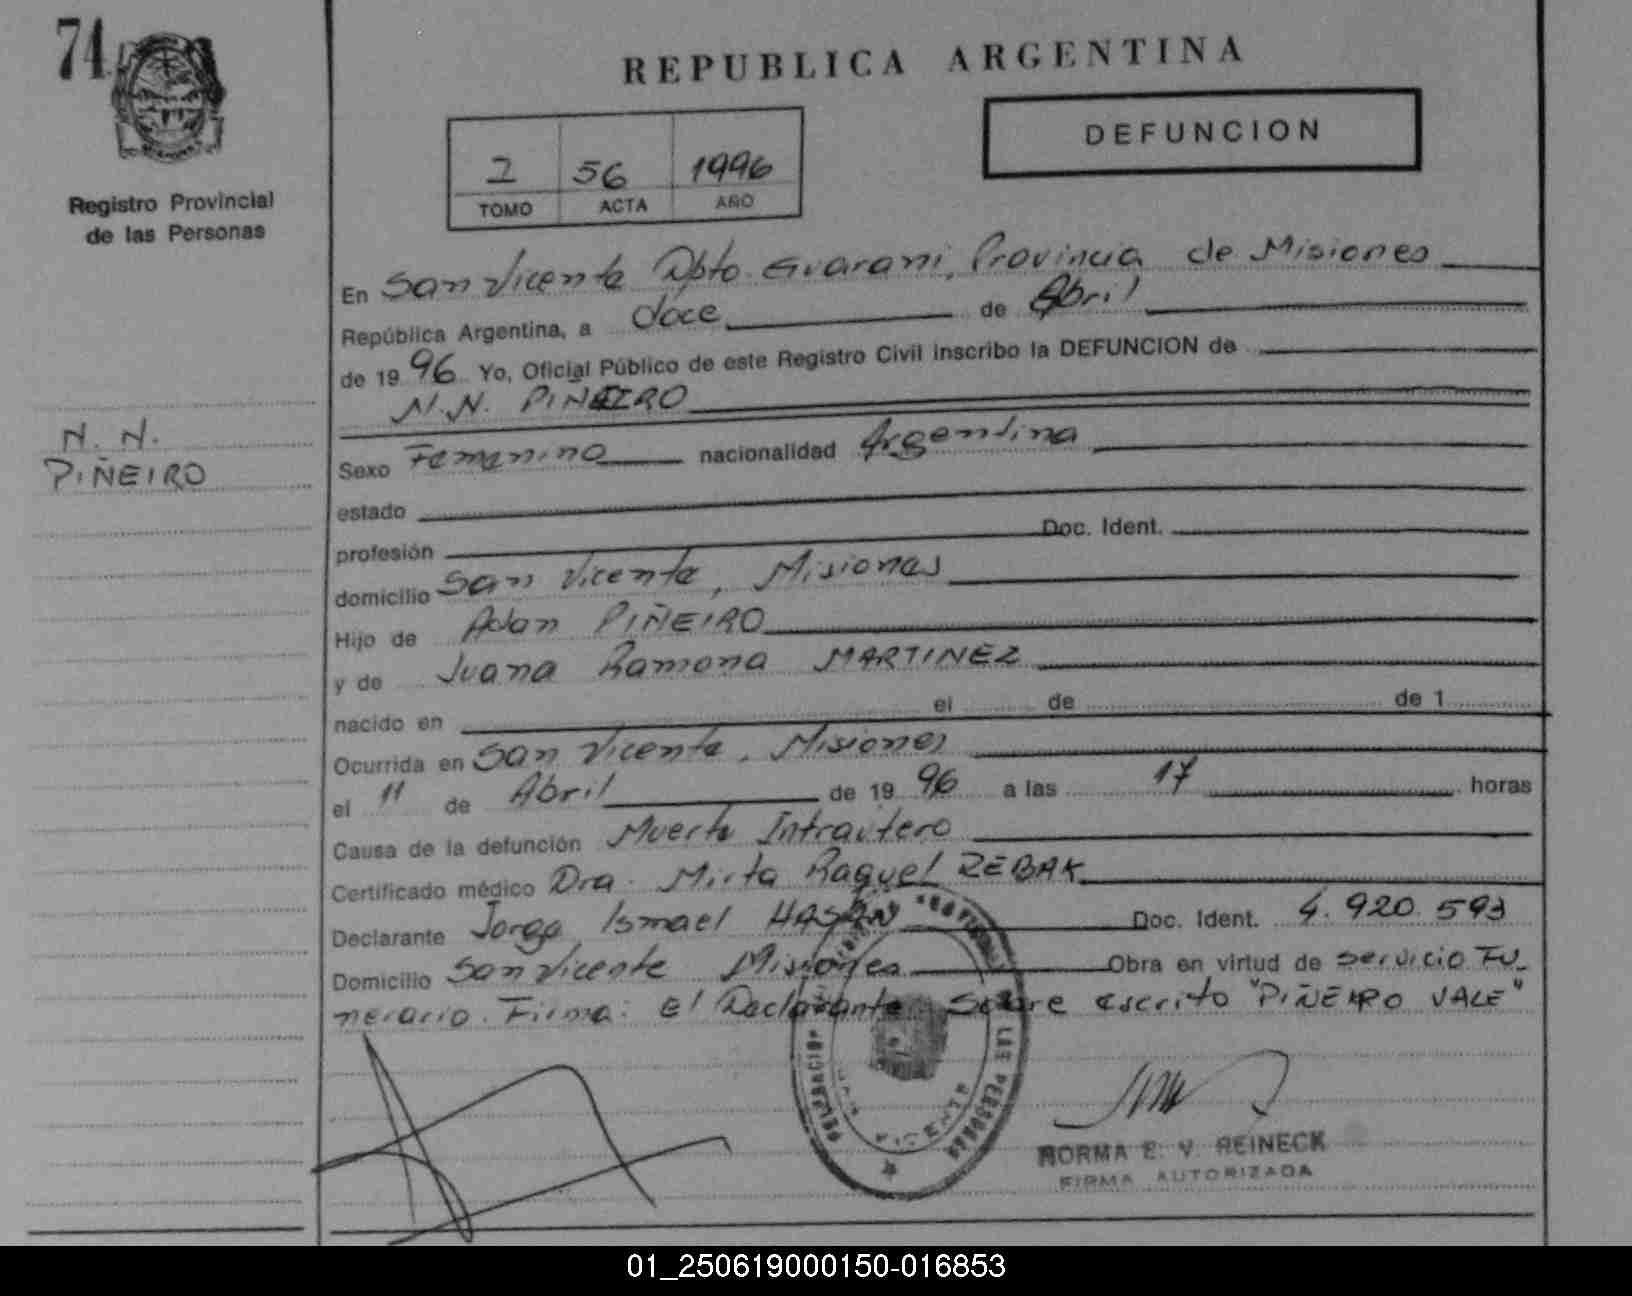 74
REPUBLICA ARGENTINA
DEFUNCION
Registro Provincial
de las Personas
I 56 1996
TOMO ACTA AÑO
En San Vicente Dpto. Guarani, Provincia de Misiones
República Argentina, a doce de Abril
de 19 96 Yo, Oficial Público de este Registro Civil inscribo la DEFUNCION de
N.N. PIÑEIRO
N. N.
PIÑEIRO
Sexo Femenino nacionalidad Argentina
estado
profesión Doc. Ident.
domicilio San Vicente, Misiones
Hijo de Adan PIÑEIRO
y de Juana Ramona MARTINEZ
nacido en el de de 1
Ocurrida en San Vicente, Misiones
el 11 de Abril de 19 96 a las 17 horas
Causa de la defunción Muerte Intrautero
Certificado médico Dra. Mirta Raquel REBAK
Declarante Jorge Ismael Doc. Ident. 4.920.593
Domicilio San Vicente Misiones Obra en virtud de servicio Fu-
nerario. Firma: el Declarante Sobre escrito "PIÑEIRO VALE"
LAS PERSONAS
VICENTE
NORMA E. V. REINECK
FIRMA AUTORIZADA
01_250619000150-016853